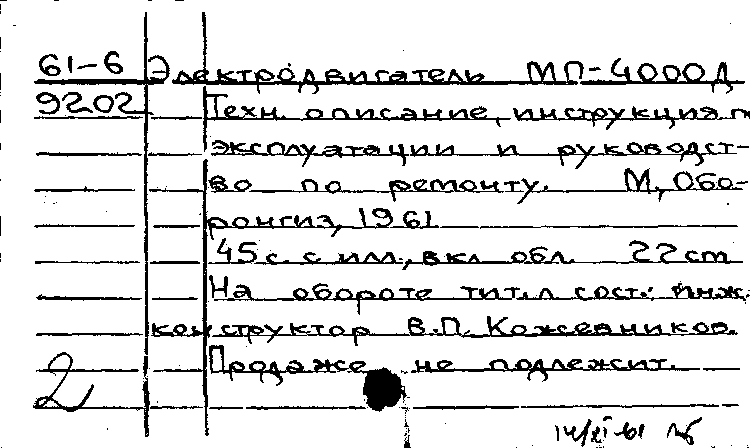 61-6 Электродвигатель МП-4000Д
9202 Техн. описание, инструкция п
эксплуатации и руководст-
во по ремонту. М, Обо-
ронгиз, 1961
45 с. с илл., вкл обл. 22 cm
На обороте тит. л сост.: инж.
конструктор В.П. Кожевников.
Продаже не подлежит.
2
14/XI-61